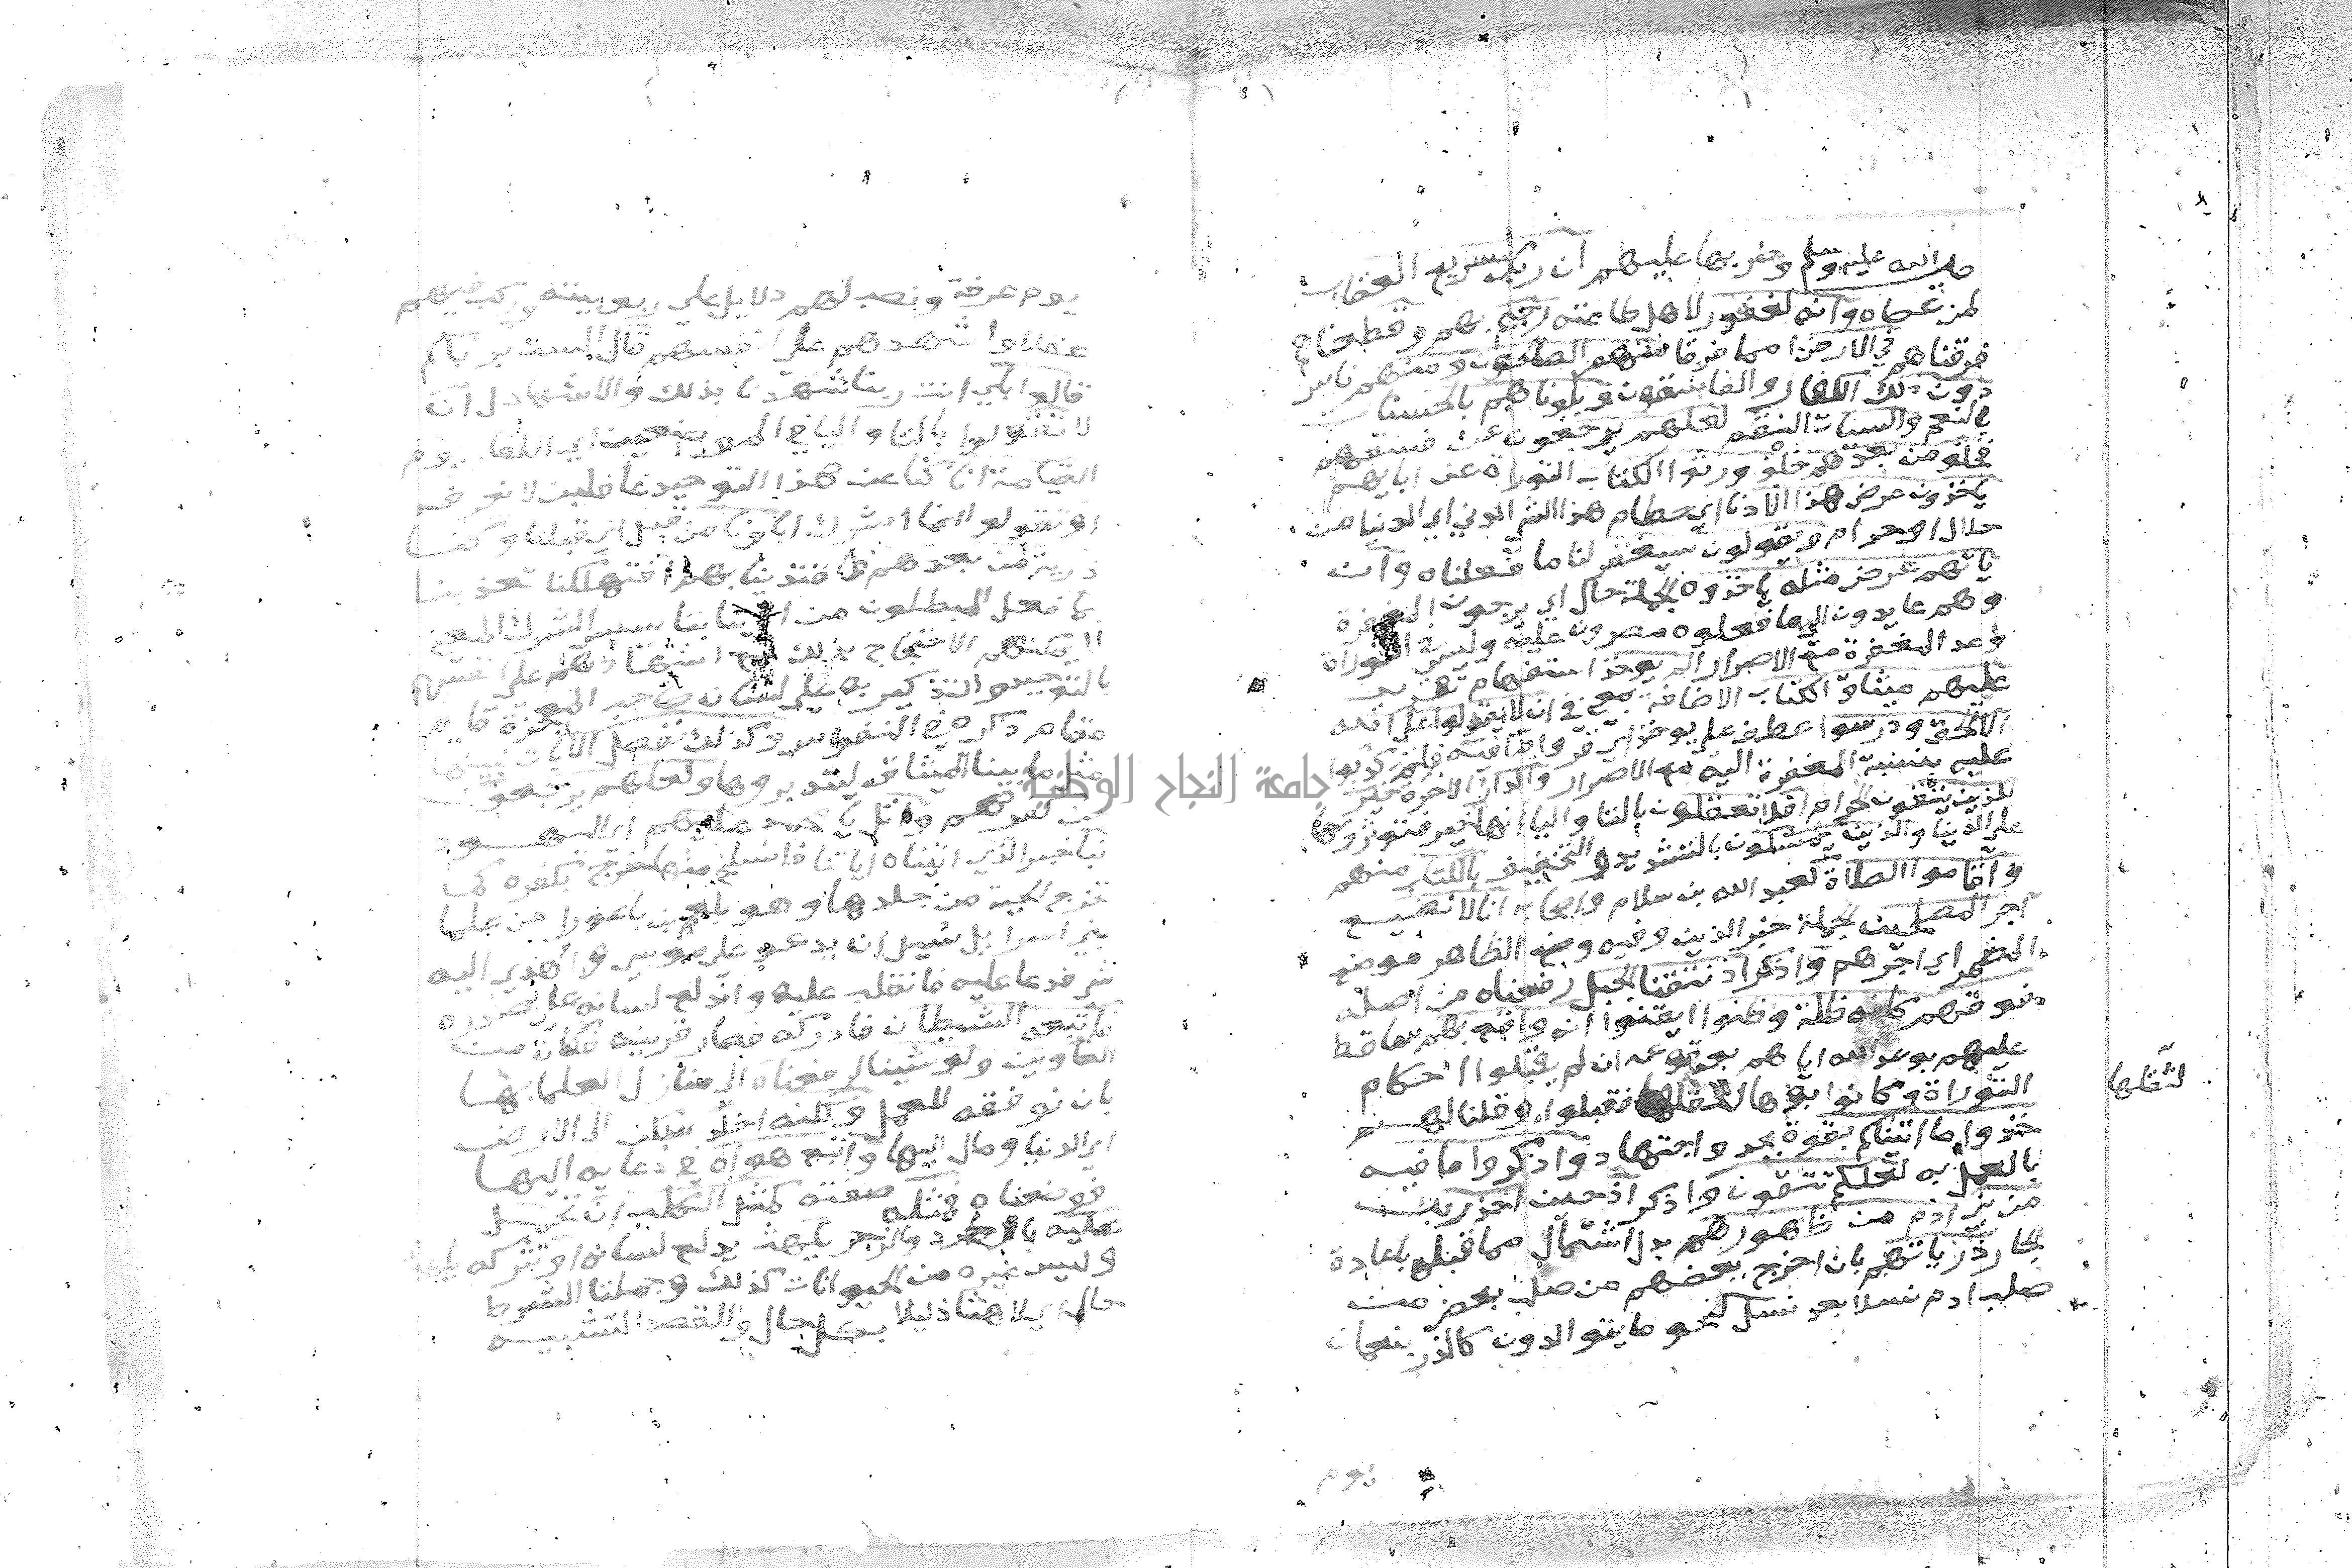 صلي الله عليه وسلم وضربها عليهم ان ربك لسريع العقاب
لمن عصاه وانه لغفور لاهل طاعته رحيم بهم وقطعناهم
فرقناهم في الارض امما فرقا منهم الصالحون ومنهم ناس
دون ذلك الكفار والفاسقون وبلوناهم بالحسنات
بالنعم والسيات النقم لعلهم يرجعون عن فسقهم
فخلف من بعدهم خلف ورثوا الكتاب التوراة عن ابايهم
ياخذون عرض هذا الادنا اي حطام هذا الشي الدني اي الدنيا من
حلال او حرام ويقولون سيغفر لنا ما فعلناه وان
ياتهم عرض مثله ياخذوه الجملة حال اي يرجون المغفرة
وهم عايدون الي ما فعلوه مصرون عليه وليس في التوراة
وعد المغفرة مع الاصرار الم يوخذ استفهام تقرير
عليهم ميثاق الكتاب الاضافة بمعني في ان لا يقولوا علي الله
الا الحق ودرسوا عطف علي يوخذ اي قروا ما فيه فلم كذبوا
عليه بنسبة المغفرة اليه مع الاصرار والدار الاخرة خير
للذين يتقون الحرام افلا تعقلون بالتا واليا انها خير فتوثروها
علي الدنيا والذين يمسكون بالتشديد والتخفيف بالكتاب منهم
واقاموا الصلاة كعبد الله بن سلام واصحابه انا لا نضيع
اجر المصلحين الجملة خبر الذين وفيه وضع الظاهر موضع
المضمر اي اجرهم واذكر اذ نتقنا الجبل رفعناه من اصله
فوقهم كانه ظلة وظنوا ايقنوا انه واقع بهم ساقط
عليهم بوعد الله اياهم بوقوعه ان لم يقبلوا احكام
التوراة وكانوا ابوها لثقلها فقبلوا وقلنا لهم
لثقلها
خذوا ما اتيناكم بقوة بجد واجتهاد واذكروا ما فيه
بالعمل به لعلكم تتقون واذكر اذ حين اخذ ربك
من بني ادم من ظهورهم بدل اشتمال مما قبله باعادة
الجار ذرياتهم بان اخرج بعضهم من صلب بعض من
صلب ادم نسلا بعد نسل كنحو ما يتوالدون كالذر بنعمان
يوم
يوم عرفة ونصب لهم دلايل علي ربوبيته وركب فيهم
عقلا واشهدهم علي انفسهم قال الست بربكم
قالوا بلي انت ربنا شهدنا بذلك والاشهاد ل ان
لا تقولوا بالتا واليا في الموضعين اي الكفار يوم
القيامة انا كنا عن هذا التوحيد غافلين لا نعرفه
او تقولوا انما اشرك اباونا من قبل اي قبلنا وكنا
ذرية من بعدهم فاقتدينا بهم افتهلكنا تعذبنا
بما فعل المبطلون من اباينا بتاسيس الشرك المعني
لا يمكنهم الاحتجاج بذلك مع اشهادهم علي انفسهم
بالتوحيد والتذكير به علي لسان صاحب المعجزة قايم
مقام ذكره في النفوس وكذلك نفصل الايات نبينها
مثل ما بينا الميثاق ليتدبروها ولعلهم يرجعون
عن كفرهم واتل يا محمد عليهم اي اليهود
نبا خبر الذي اتيناه اياتنا فانسلخ منها خرج بكفره كما
تخرج الحية من جلدها وهو بلعم بن باعورا من علما
بني اسرايل سُيل ان يدعو علي موسي واُهدي اليه
شي فدعا عليه فانقلب عليه واندلع لسانه علي صدره
فاتبعه الشيطان فادركه فصار قرينه فكان من
الغاوين ولو شينا لرفعناه الي منازل العلما بها
بان نوفقه للعمل ولكنه اخلد سكن الي الارض
اي الدنيا ومال اليها واتبع هواه في دعايه اليها
فوضعناه فمثله صفته كمثل الكلب ان تحمل
عليه بالطرد والزجر يلهث يدلع لسانه او تتركه يلهث
وليس غيره من الحيوانات كذلك وجملتا الشرط
حال اي لاهثا ذليلا بكل حال والقصد التشبيه
جامعة النجاح الوطنية